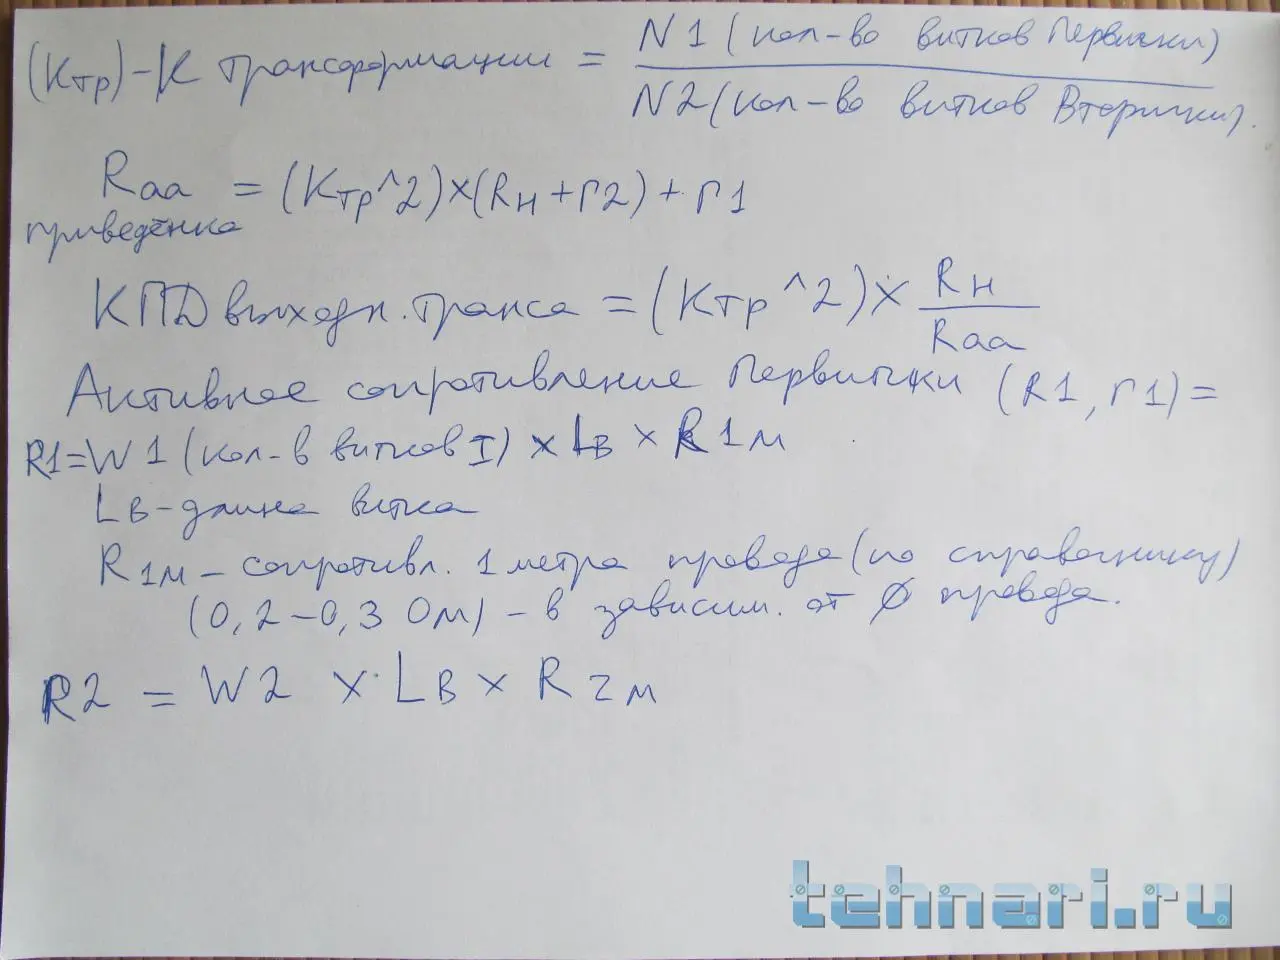 (Ктр) - К трансформации = N1 (кол-во витков Первички)
N2 (кол-во витков Вторички).
Rаа = (Ктр^2)×(Rн+r2)+r1
приведёнка
КПД выходн. транса = (Ктр^2)× Rн
Rаа
Активное сопротивление Первички (R1, r1) =
R1=W1 (кол-в витков I) × Lв × R1м
Lв-длина витка
R1м - сопротивл. 1 метра провода (по справочнику)
(0,2-0,3 Ом) - в зависим. от ∅ провода.
R2 = W2 × Lв × R2м
tehnari.ru